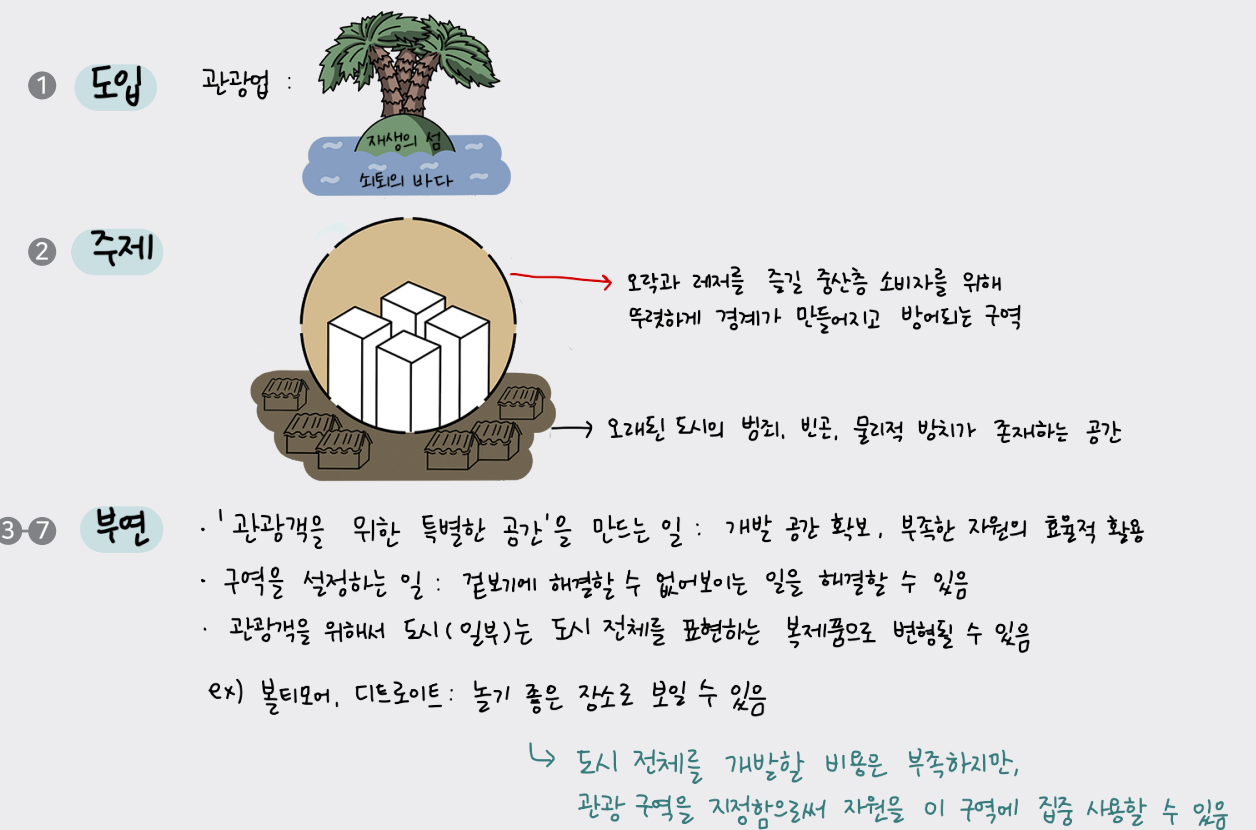 1 도입 관광업 :
재생의 섬
쇠퇴의 바다
2 주제
오락과 레저를 즐길 중산층 소비자를 위해
뚜렷하게 경계가 만들어지고 방어되는 구역
오래된 도시의 범죄, 빈곤, 물리적 방치가 존재하는 공간
3-7 부연 · '관광객을 위한 특별한 공간'을 만드는 일 : 개발 공간 확보, 부족한 자원의 효율적 활용
· 구역을 설정하는 일 : 겉보기에 해결할 수 없어보이는 일을 해결할 수 있음
· 관광객을 위해서 도시(일부)는 도시 전체를 표현하는 복제품으로 변형될 수 있음
ex) 볼티모어, 디트로이트 : 놀기 좋은 장소로 보일 수 있음
↳ 도시 전체를 개발할 비용은 부족하지만,
관광 구역을 지정함으로써 자원을 이 구역에 집중 사용할 수 있음